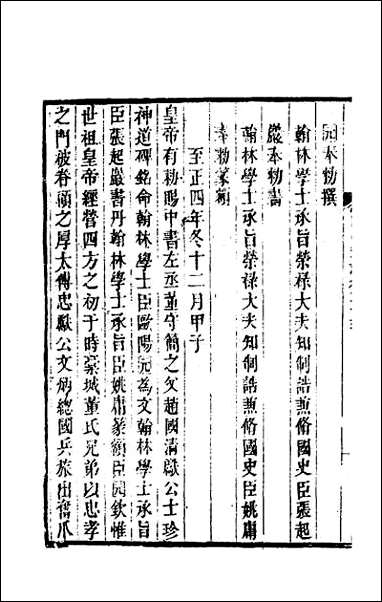 元奉勅撰
翰林學士承旨榮祿大夫知制誥兼脩國史臣張起
巖奉勅書
翰林學士承旨榮祿大夫知制誥兼脩國史臣姚庸
奉勅篆額
至正四年冬十二月甲子
皇帝有勅賜中書左丞董守簡之父趙國清獻公士珍
神道碑銘命翰林學士臣歐陽元為文翰林學士承旨
臣張起巖書丹翰林學士承旨臣姚庸篆額臣元欽惟
世祖皇帝經營四方之初于時藁城董氏兄弟以忠孝
之門被眷顧之厚太傅忠獻公文炳總國兵旅出奮爪